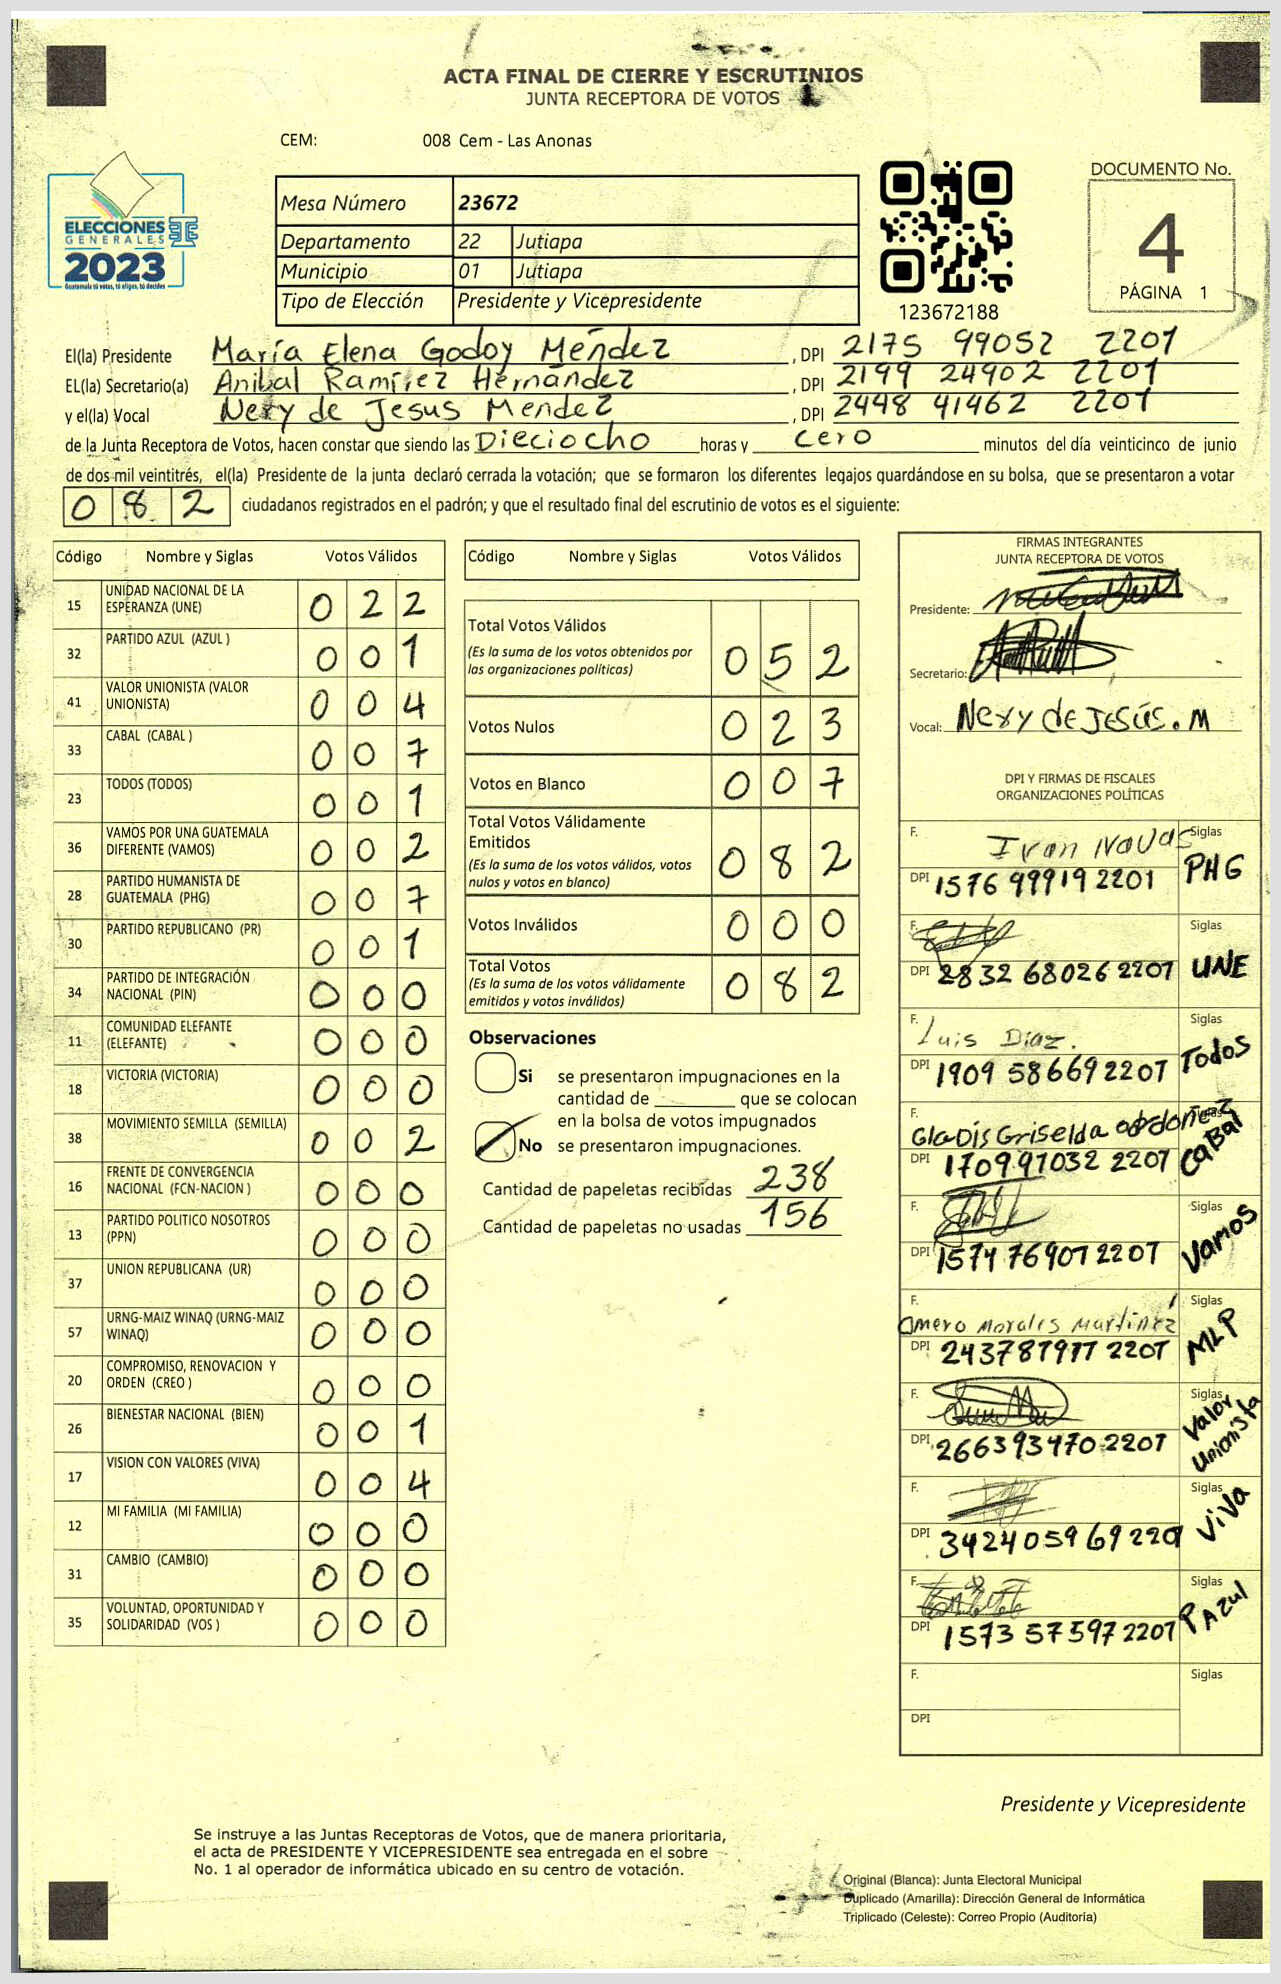 ACTA FINAL DE CIERRE Y ESCRUTINIOS
JUNTA RECEPTORA DE VOTOS
CEM: 008 Cem - Las Anonas
ELECCIONES
GENERALES
2023
Guatemala tú votas, tú eliges, tú decides
Mesa Número 23672
Departamento 22 Jutiapa
Municipio 01 Jutiapa
Tipo de Elección Presidente y Vicepresidente
123672188
DOCUMENTO No.
4
PÁGINA 1
El(la) Presidente María Elena Godoy Méndez , DPI 2175 99052 2201
EL(la) Secretario(a) Anibal Ramírez Hernández , DPI 2199 24902 2201
y el(la) Vocal Nery de Jesus Mendez , DPI 2448 41462 2201
de la Junta Receptora de Votos, hacen constar que siendo las Dieciocho horas y cero minutos del día veinticinco de junio
de dos mil veintitrés, el(la) Presidente de la junta declaró cerrada la votación; que se formaron los diferentes legajos guardándose en su bolsa, que se presentaron a votar
0 8 2 ciudadanos registrados en el padrón; y que el resultado final del escrutinio de votos es el siguiente:
Código Nombre y Siglas Votos Válidos
15 UNIDAD NACIONAL DE LA
ESPERANZA (UNE) 0 2 2
32 PARTIDO AZUL (AZUL ) 0 0 1
41 VALOR UNIONISTA (VALOR
UNIONISTA) 0 0 4
33 CABAL (CABAL ) 0 0 7
23 TODOS (TODOS) 0 0 1
36 VAMOS POR UNA GUATEMALA
DIFERENTE (VAMOS) 0 0 2
28 PARTIDO HUMANISTA DE
GUATEMALA (PHG) 0 0 7
30 PARTIDO REPUBLICANO (PR) 0 0 1
34 PARTIDO DE INTEGRACIÓN
NACIONAL (PIN) 0 0 0
11 COMUNIDAD ELEFANTE
(ELEFANTE) 0 0 0
18 VICTORIA (VICTORIA) 0 0 0
38 MOVIMIENTO SEMILLA (SEMILLA) 0 0 2
16 FRENTE DE CONVERGENCIA
NACIONAL (FCN-NACION ) 0 0 0
13 PARTIDO POLITICO NOSOTROS
(PPN) 0 0 0
37 UNION REPUBLICANA (UR) 0 0 0
57 URNG-MAIZ WINAQ (URNG-MAIZ
WINAQ) 0 0 0
20 COMPROMISO, RENOVACION Y
ORDEN (CREO ) 0 0 0
26 BIENESTAR NACIONAL (BIEN) 0 0 1
17 VISION CON VALORES (VIVA) 0 0 4
12 MI FAMILIA (MI FAMILIA) 0 0 0
31 CAMBIO (CAMBIO) 0 0 0
35 VOLUNTAD, OPORTUNIDAD Y
SOLIDARIDAD (VOS ) 0 0 0
Código Nombre y Siglas Votos Válidos
Total Votos Válidos
(Es la suma de los votos obtenidos por
las organizaciones políticas) 0 5 2
Votos Nulos 0 2 3
Votos en Blanco 0 0 7
Total Votos Válidamente
Emitidos
(Es la suma de los votos válidos, votos
nulos y votos en blanco) 0 8 2
Votos Inválidos 0 0 0
Total Votos
(Es la suma de los votos válidamente
emitidos y votos inválidos) 0 8 2
Observaciones
Si se presentaron impugnaciones en la
cantidad de ________ que se colocan
en la bolsa de votos impugnados
No se presentaron impugnaciones.
Cantidad de papeletas recibidas 238
Cantidad de papeletas no usadas 156
FIRMAS INTEGRANTES
JUNTA RECEPTORA DE VOTOS
Presidente:
Secretario:
Vocal: Nery de Jesús. M
DPI Y FIRMAS DE FISCALES
ORGANIZACIONES POLÍTICAS
F. Ivan Navas Siglas
DPI 1576 99919 2201 PHG
F. Siglas
DPI 2832 68026 2207 UNE
F. Luis Diaz. Siglas
DPI 1909 58669 2207 Todos
F. Gladis Griselda ordoñez Siglas
DPI 1709 97032 2207 CaBal
F. Siglas
DPI 1574 76907 2207 Vamos
F. Omero Morales Martinéz Siglas
DPI 2437 87977 2207 MLP
F. Siglas
DPI 2663 93470 2207 Valor Unionista
F. Siglas
DPI 3424 05969 220 ViVa
F. Siglas
DPI 1573 57597 2207 P Azul
F. Siglas
DPI
Presidente y Vicepresidente
Se instruye a las Juntas Receptoras de Votos, que de manera prioritaria,
el acta de PRESIDENTE Y VICEPRESIDENTE sea entregada en el sobre
No. 1 al operador de informática ubicado en su centro de votación.
Original (Blanca): Junta Electoral Municipal
Duplicado (Amarilla): Dirección General de Informática
Triplicado (Celeste): Correo Propio (Auditoría)